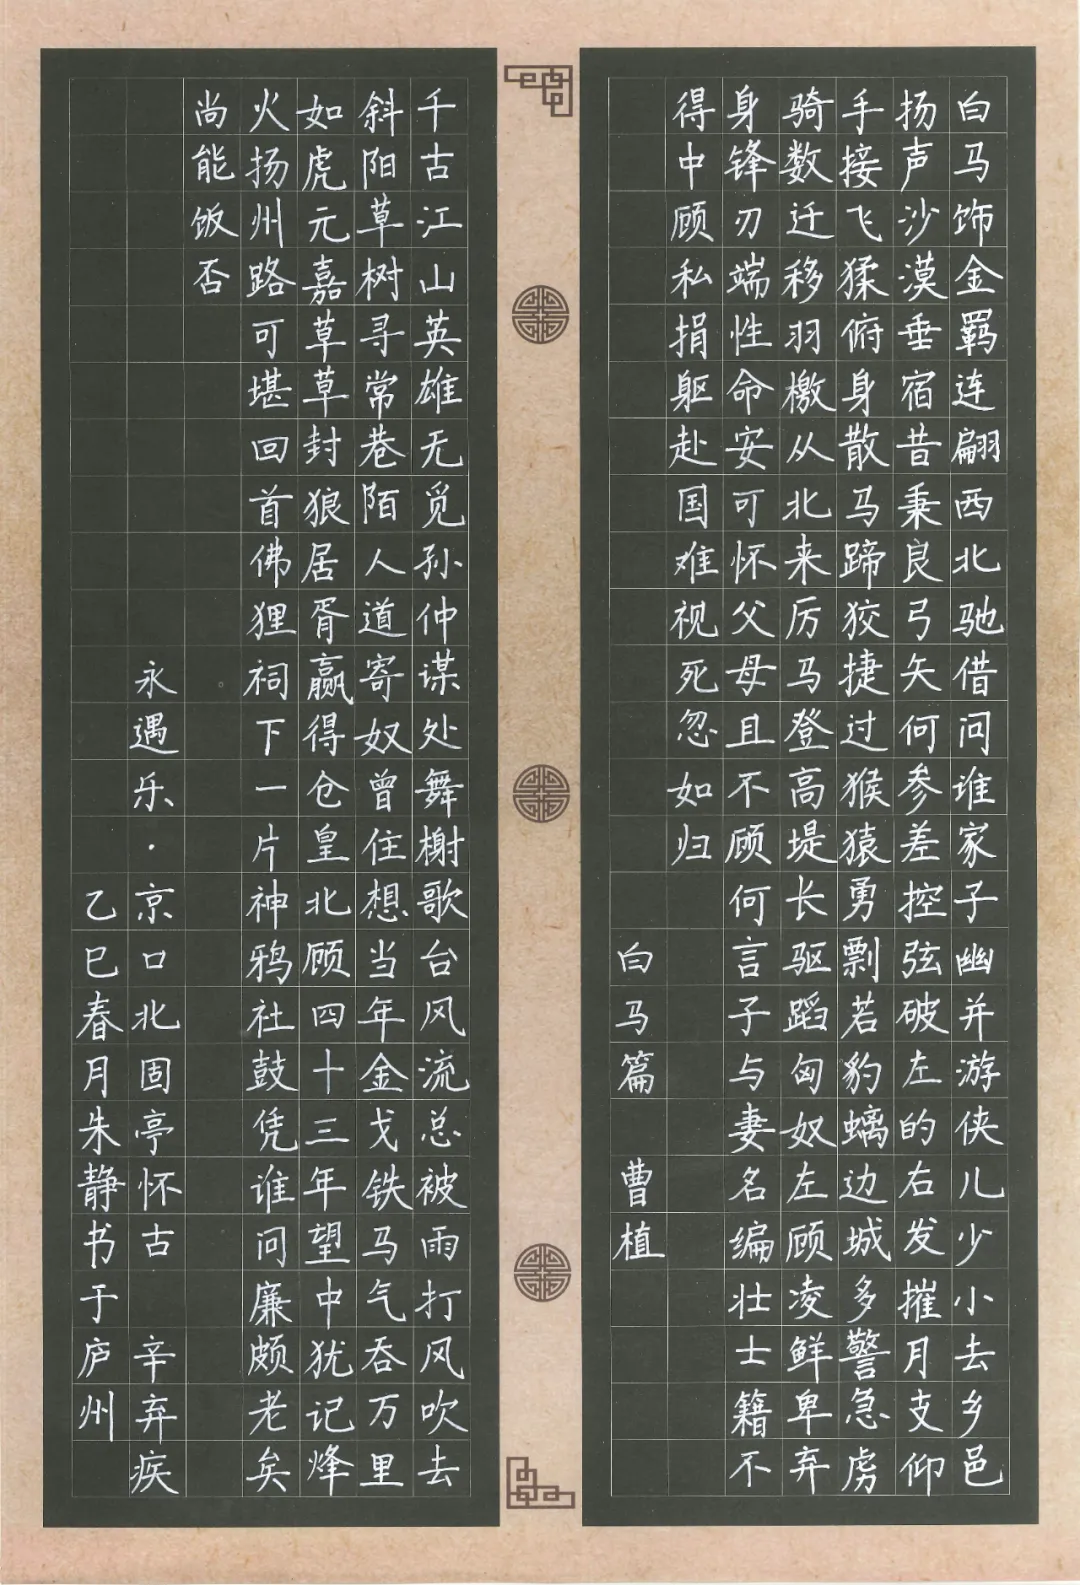 白马饰金羁连翩西北驰借问谁家子幽并游侠儿少小去乡邑
扬声沙漠垂宿昔秉良弓矢何参差控弦破左的右发摧月支仰
手接飞猱俯身散马蹄狡捷过猴猿勇剽若豹螭边城多警急虏
骑数迁移羽檄从北来厉马登高堤长驱蹈匈奴左顾凌鲜卑弃
身锋刃端性命安可怀父母且不顾何言子与妻名编壮士籍不
得中顾私捐躯赴国难视死忽如归
白马篇 曹植
千古江山英雄无觅孙仲谋处舞榭歌台风流总被雨打风吹去
斜阳草树寻常巷陌人道寄奴曾住想当年金戈铁马气吞万里
如虎元嘉草草封狼居胥赢得仓皇北顾四十三年望中犹记烽
火扬州路可堪回首佛狸祠下一片神鸦社鼓凭谁问廉颇老矣
尚能饭否
永遇乐·京口北固亭怀古 辛弃疾
乙巳春月朱静书于庐州